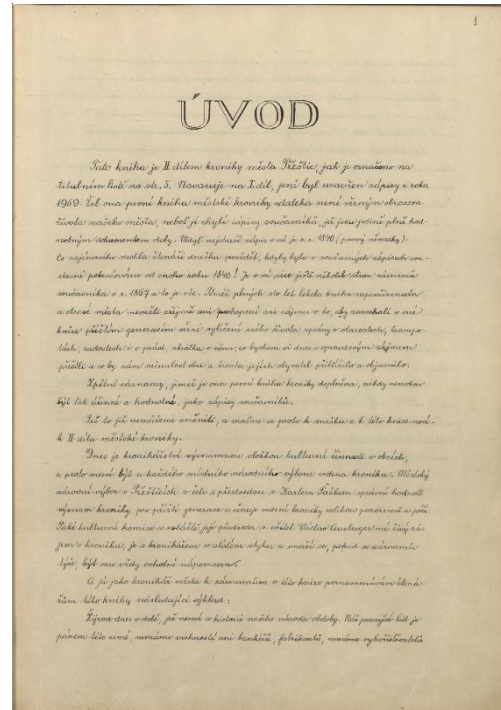 1
ÚVOD
Tato kniha je II. dílem kroniky města Přeštic, jak je označeno na
titulním listě na str. 5. Navazuje na I. díl, jenž byl uzavřen zápisy z roku
1959. Žel ona první kniha městské kroniky zdaleka není věrným obrazem
života našeho města, neboť jí chybí zápisy současníků, jež jsou jedině plně hod-
nověrným dokumentem doby. Vždyť nejstarší zápis v ní je z r. 1840 (psaný německy).
Co zajímavého mohla čtenáři dneška povědět, kdyby bylo v současných zápisech sou-
stavně pokračováno od onoho roku 1840! Je v ní sice ještě několik stran záznamů
současníka z r. 1867 a to je vše. Téměř plných sto let ležela kniha nepovšimnuta
a otcové města neměli zřejmě ani pochopení ani zájmu o to, aby zanechali v oné
knize příštím generacím věrné vylíčení svého života, zprávy o starostech, tram­po-
tách, radostech i o práci, zkrátka o všem, co bychom si dnes s opravdovým zájmem
přečtli a co by nám minulost obce a života jejích obyvatel přiblížilo a objasnilo.
Zpětné záznamy, jimiž je ona první kniha kroniky doplněna, nikdy nemohou
být tak účinné a hodnotné, jako zápisy současníků.
Leč to již nemůžeme změnit, a vraťme se proto k dnešku a k této knize nové -
k II. dílu městské kroniky.
Dnes je kronikářství významnou složkou kulturní činnosti v obcích,
a proto musí být u každého místního národního výboru vedena kronika. Městský
národní výbor v Přešticích v čele s předsedou s. Karlem Faškem správně hodnotí
význam kroniky pro příští generace a věnuje vedení kroniky velikou pozornost a péči.
Také kulturní komise a zvláště její předseda s. učitel Václav má živý zá-
jem o kroniku, je s kronikářem v stálém styku a snaží se, pokud se záznamů
týče, být mu vždy ochotně nápomocen.
A já jako kronikář města k záznamům v této knize poznamenávám čtená-
řům této knihy následující výklad:
Žijeme dnes v době, jež nemá v historii našeho národa obdoby. Náš pracující lid je
pánem této země, nemáme velkostatkářů ani bankéřů, fabrikantů, nemáme vykořisťovatelů